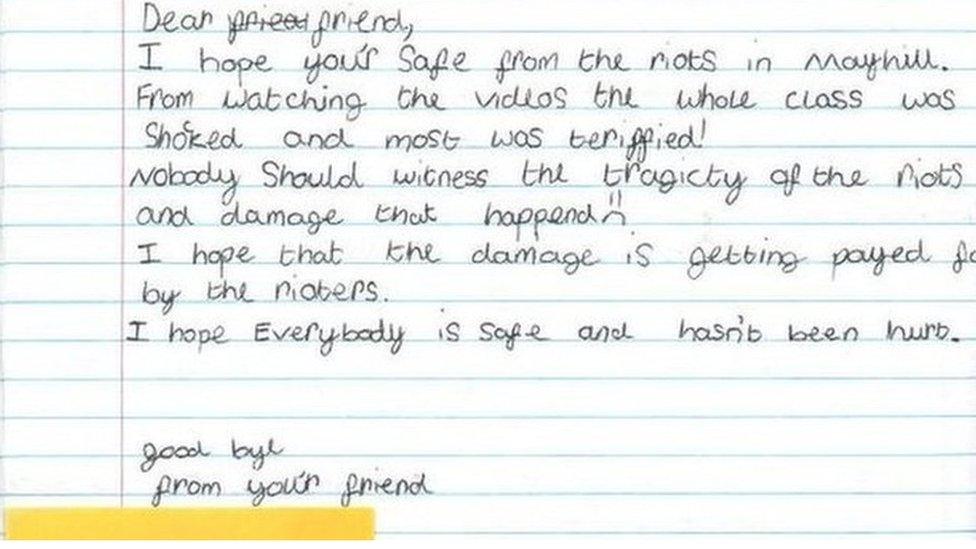 Dear friend,
I hope you'r Safe from the riots in Mayhill.
From watching the videos the whole class was
Shoked and most was teriffied!
Nobody Should witness the tragicty of the riots
and damage that happend
I hope that the damage is getting payed fo
by the rioters.
I hope Everybody is safe and hasn't been hurt.
good bye
from you'r friend